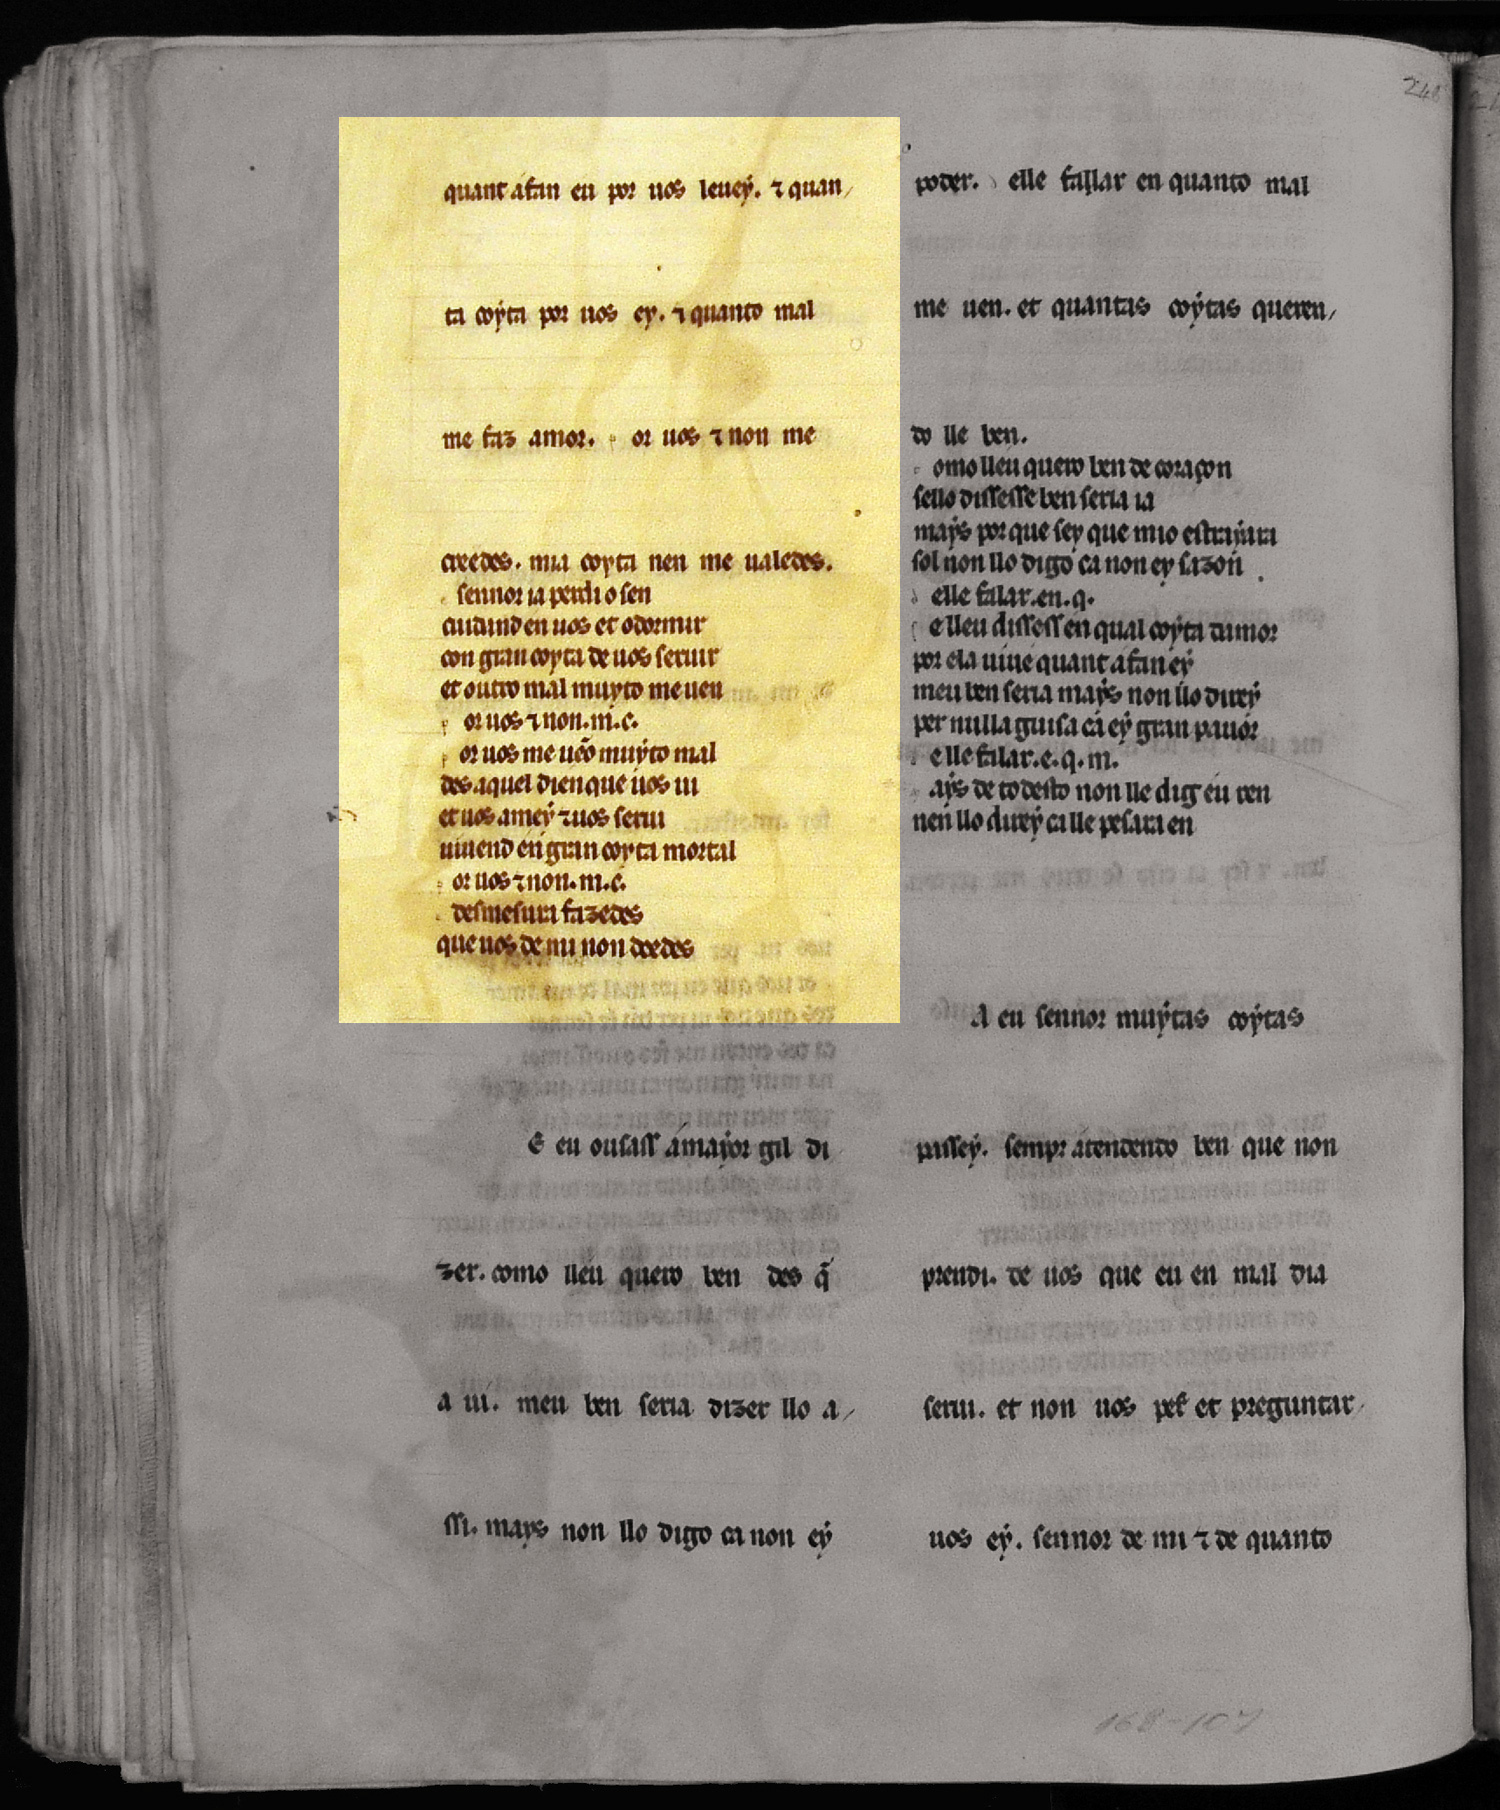 quant afan eu por uos leuey. ⁊ quan/
ta coyta por uos ey. ⁊ quanto mal
me faz amor. or uos ⁊ non me
creedes. mia coyta nen me ualedes.
sennor ia perdi o sen
cuidand en uos et o dormir
con gran coyta de uos seruir
et outro mal muyto me uen
or uos ⁊ non .m.c.
or uos me uẽo muyto mal
des aquel dien que uos ui
et uos amey ⁊ uos serui
uiuend en gran coyta mortal
or uos ⁊ non. m. c.
desmesura fazedes
que uos de mi non doedes
E eu ousass a mayor gil di
zer. como lleu quero ben des q̃
a ui. meu ben seria dizer llo a/
ssi. mays non llo digo ca non ey
poder. elle fallar en quanto mal
me uen. et quantas coytas queren/
do lle ben.
omo lleu quero ben de coraçon
sello dissesse ben seria ia
mays por que sey que mio estrayara
sol non llo digo ca non ey sazon
elle falar.en.q.
e lleu dissess en qual coyta damor
por ela uiue quant afan ey
meu ben seria mays non llo direy
per nulla guisa ca ey gran pauor
elle falar.e.q.m.
ays de todesto non lle dig eu ren
nen llo direy ca lle pesara en
A eu sennor muytas coytas
passey. sempr atendendo ben que non
prendi. de uos que eu en mal dia
serui. et non uos pes et preguntar
uos ey. sennor de mi ⁊ de quanto
168-107